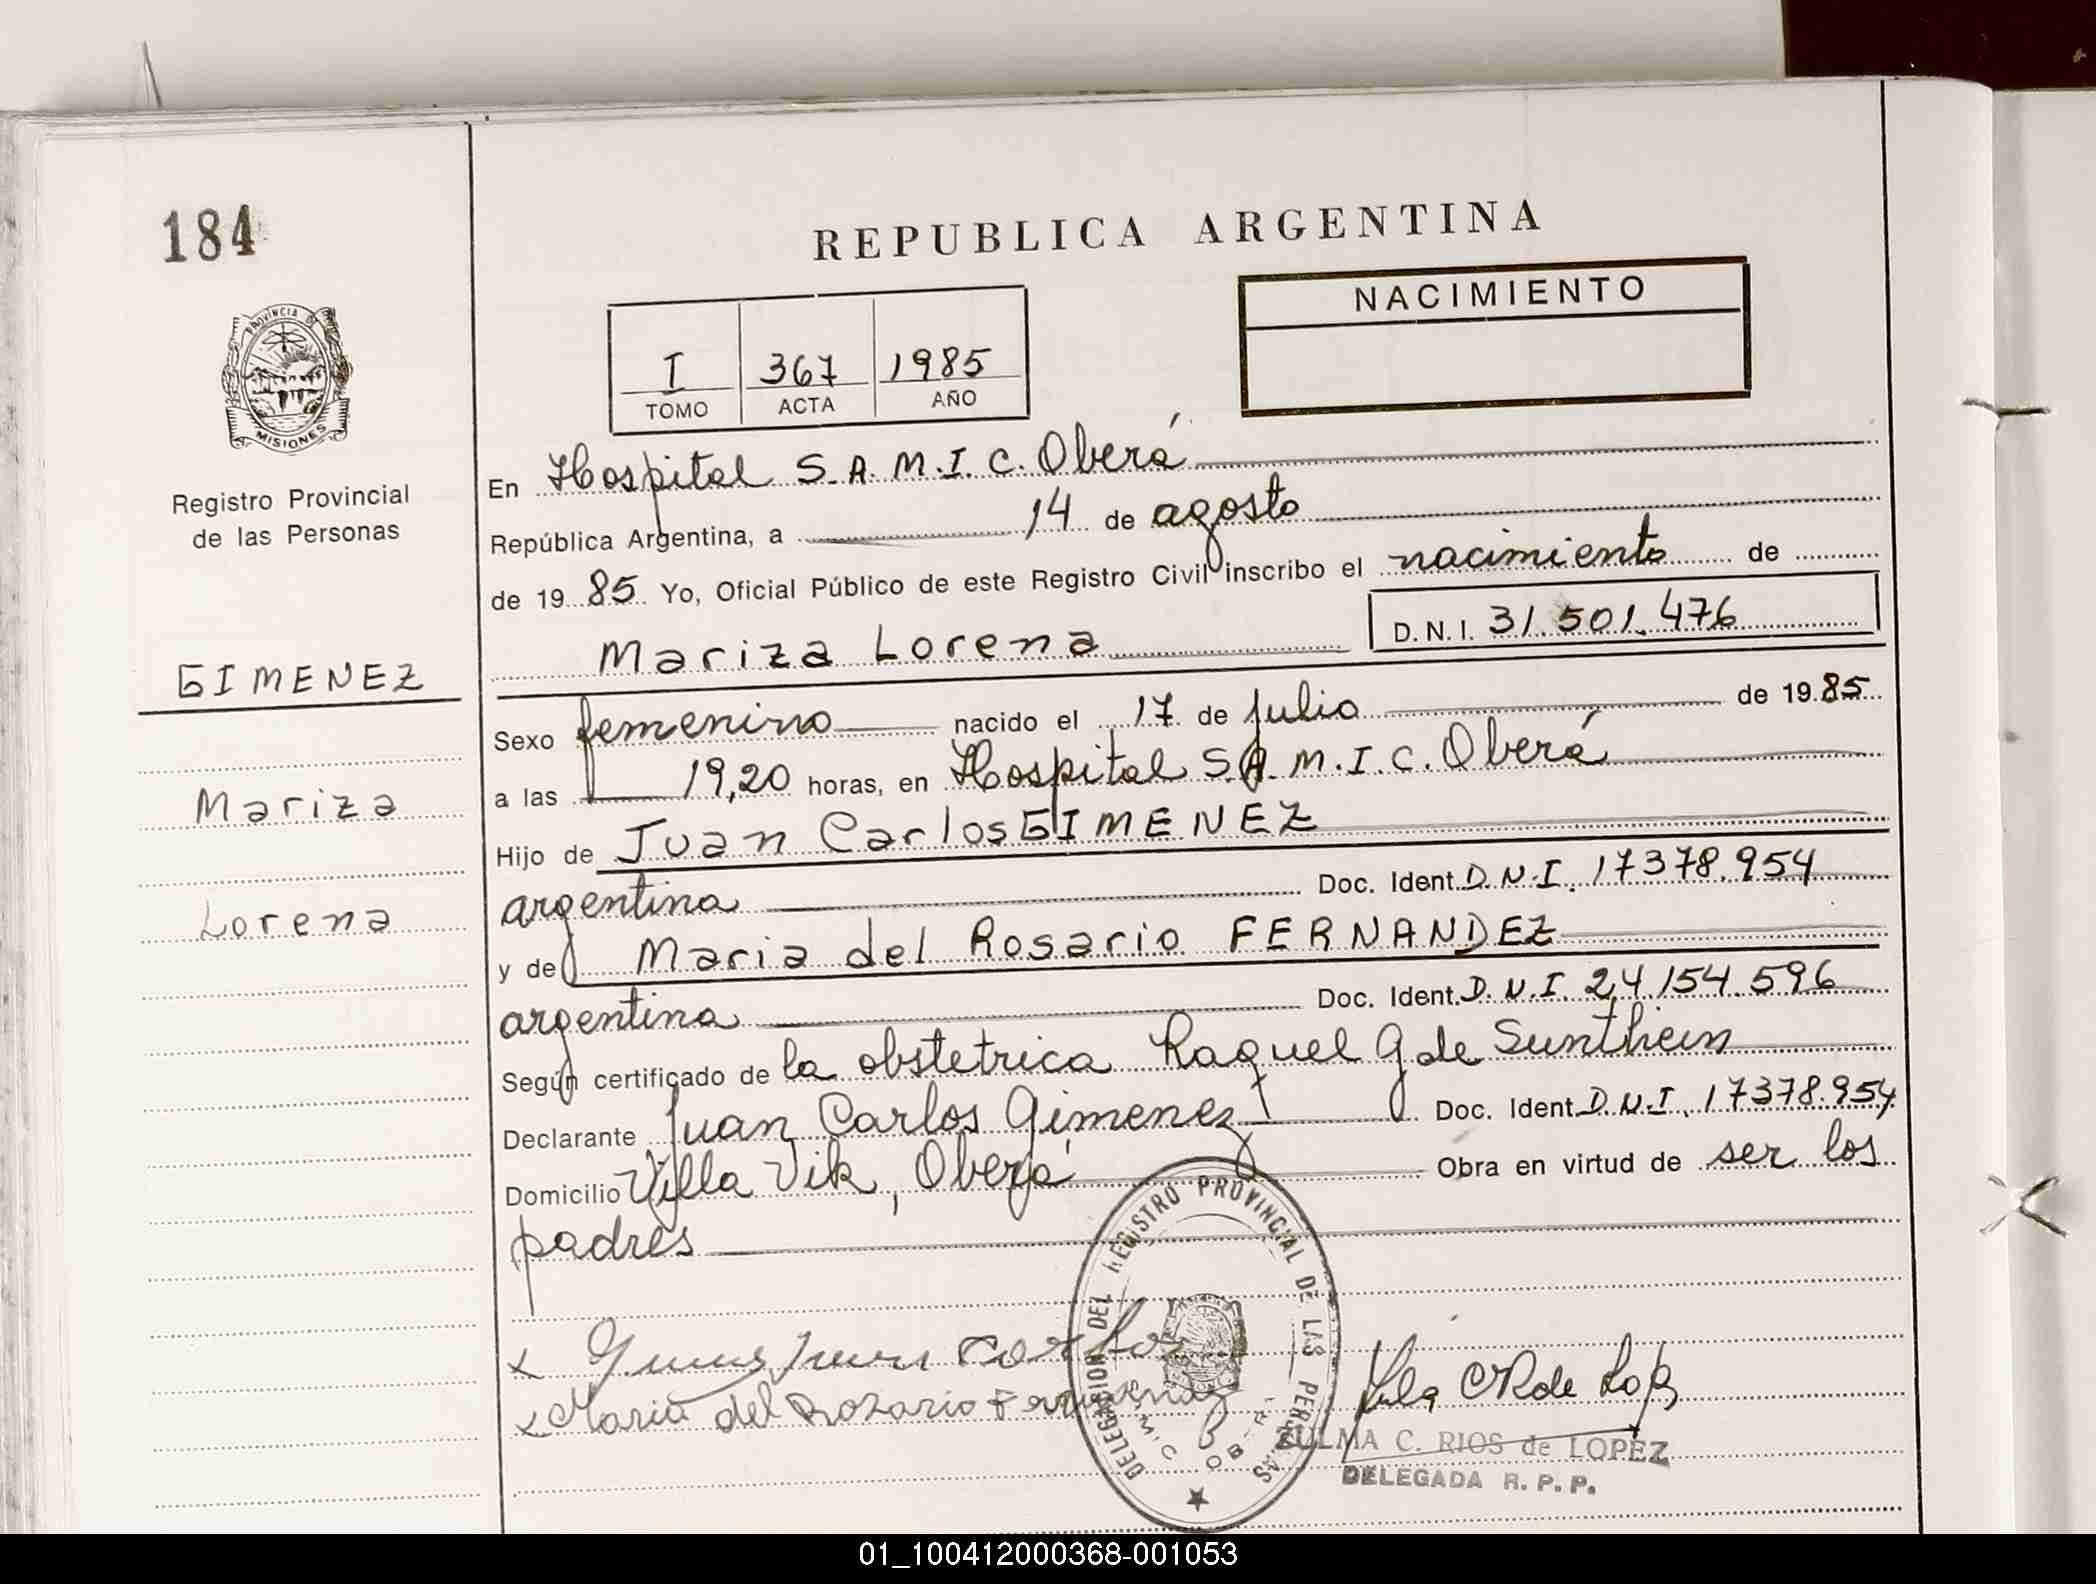 184
REPUBLICA ARGENTINA
NACIMIENTO
I 367 1985
TOMO ACTA AÑO
PROVINCIA DE
MISIONES
Registro Provincial
de las Personas
GIMENEZ
Mariza
Lorena
En Hospital S.A.M.I.C. Oberá
República Argentina, a 14 de agosto
de 1985 Yo, Oficial Público de este Registro Civil inscribo el nacimiento de
Mariza Lorena D.N.I. 31.501.476
Sexo femenino nacido el 17 de julio de 1985
a las 19,20 horas, en Hospital S.A.M.I.C. Oberá
Hijo de Juan Carlos GIMENEZ
argentina Doc. Ident. D.N.I. 17378.954
y de Maria del Rosario FERNANDEZ
argentina Doc. Ident. D.N.I. 24.154.596
Según certificado de la obstetrica Raquel G de Sunthein
Declarante Juan Carlos Gimenez Doc. Ident. D.N.I. 17378.954
Domicilio Villa Vik, Oberá Obra en virtud de ser los
padres
x
x Maria del Rozario Fernandez
DELEGACION DEL REGISTRO PROVINCIAL DE LAS PERSONAS
ZULMA C. RIOS de LOPEZ
DELEGADA R. P. P.
01_100412000368-001053